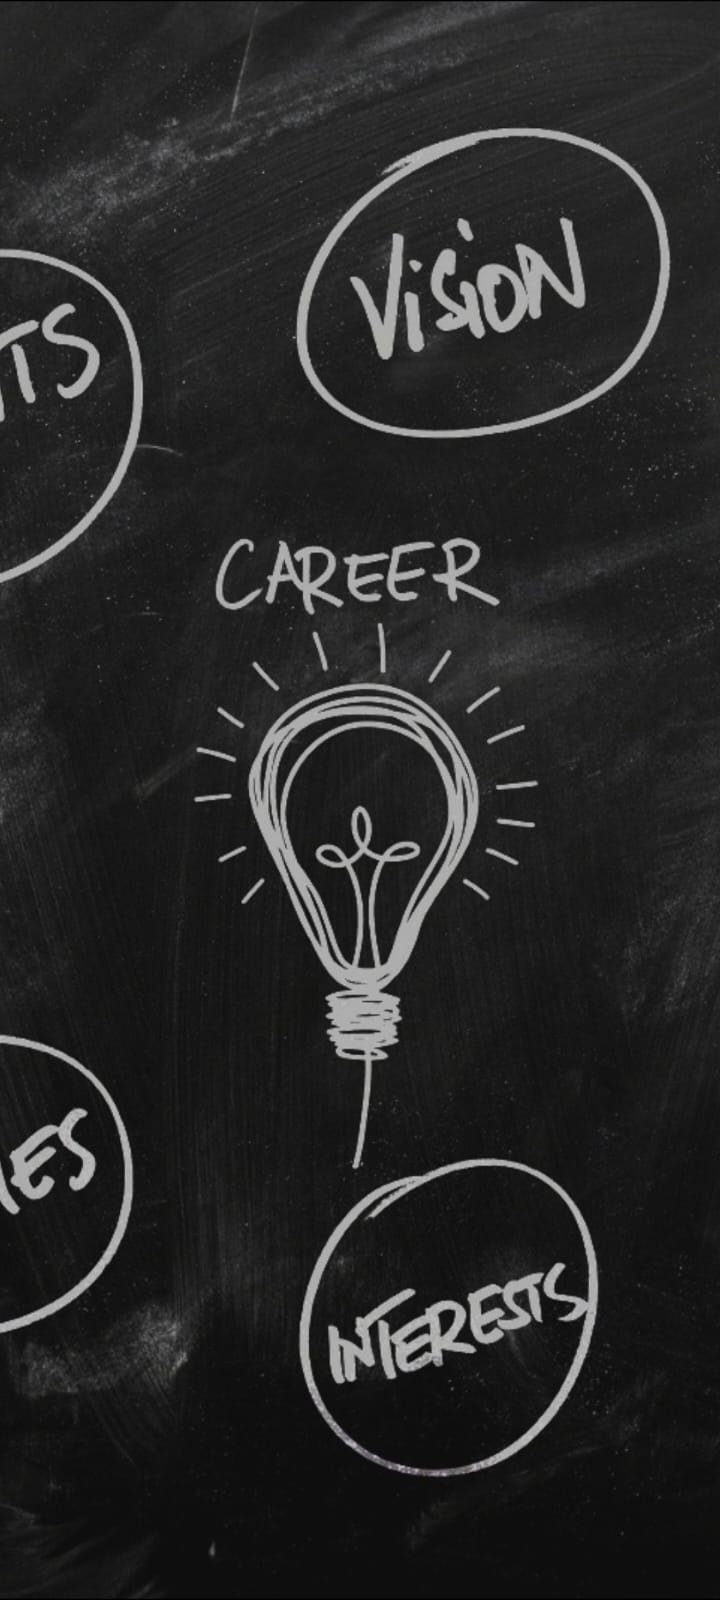 VISION
TS
CAREER
IES
INTERESTS